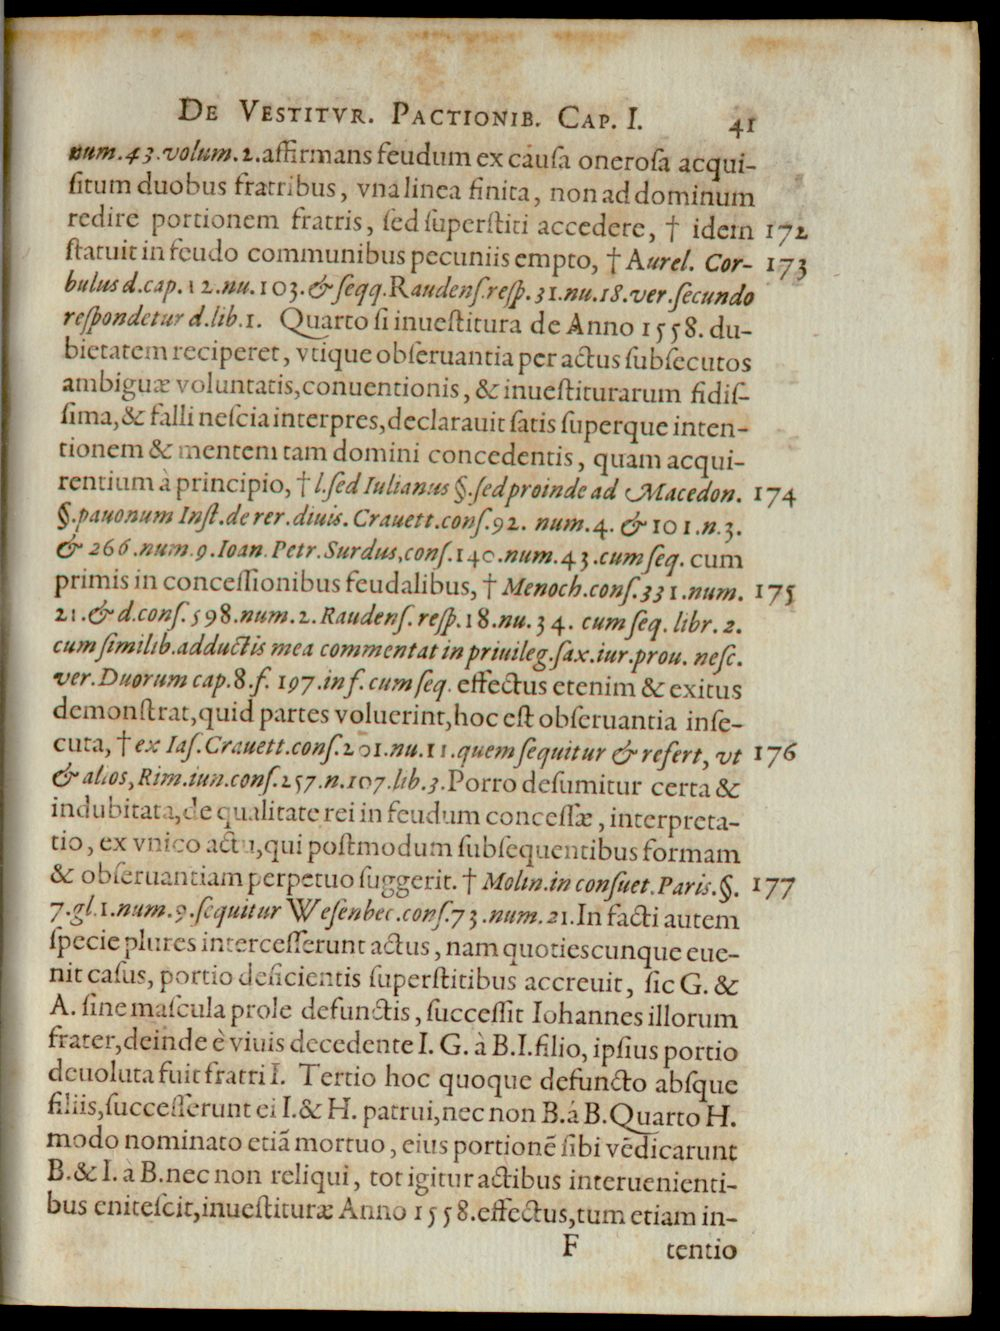 De Vestitvr. Pactionib. Cap. I. 41
num. 43. volum. 2. affirmans feudum ex causa onerosa acqui-
situm duobus fratribus, vna linea finita, non ad dominum
redire portionem fratris, sed superstiti accedere, † idem 172
statuit in feudo communibus pecuniis empto, † Aurel. Cor- 173
bulus d. cap. 12. nu. 103. & seqq. Raudens. resp. 31. nu. 18. ver. secundo
respondetur d. lib. 1. Quarto si inuestitura de Anno 1558. du-
bietatem reciperet, vtique obseruantia per actus subsecutos
ambiguæ voluntatis, conuentionis, & inuestiturarum fidis-
sima, & falli nescia interpres, declarauit satis superque inten-
tionem & mentem tam domini concedentis, quam acqui-
rentium à principio, † l. sed Iulianus §. sed proinde ad Macedon. 174
§. pauonum Inst. de rer. diuis. Crauett. cons. 92. num. 4. & 101. n. 3.
& 266. num. 9. Ioan. Petr. Surdus, cons. 140. num. 43. cum seq. cum
primis in concessionibus feudalibus, † Menoch. cons. 331. num. 175
21. & d. cons. 598. num. 2. Raudens. resp. 18. nu. 34. cum seq. libr. 2.
cum similib. adductis mea commentat in priuileg. sax. iur. prou. nesc.
ver. Duorum cap. 8. f. 197. in f. cum seq. effectus etenim & exitus
demonstrat, quid partes voluerint, hoc est obseruantia inse-
cuta, † ex Ias. Crauett. cons. 201. nu. 11. quem sequitur & refert, vt 176
& alios, Rim. iun. cons. 257. n. 107. lib. 3. Porro desumitur certa &
indubitata, de qualitate rei in feudum concessæ, interpreta-
tio, ex vnico actu, qui postmodum subsequentibus formam
& obseruantiam perpetuo suggerit. † Molin. in consuet. Paris. §. 177
7. gl. 1. num. 9. sequitur Wesenbec. cons. 73. num. 21. In facti autem
specie plures intercesserunt actus, nam quotiescunque eue-
nit casus, portio deficientis superstitibus accreuit, sic G. &
A. sine mascula prole defunctis, successit Iohannes illorum
frater, deinde è viuis decedente I. G. à B. I. filio, ipsius portio
deuoluta fuit fratri I. Tertio hoc quoque defuncto absque
filiis, successerunt ei I. & H. patrui, nec non B. á B. Quarto H.
modo nominato etiã mortuo, eius portionẽ sibi vẽdicarunt
B. & I. à B. nec non reliqui, tot igitur actibus interuenienti-
bus enitescit, inuestituræ Anno 1558. effectus, tum etiam in-
F tentio